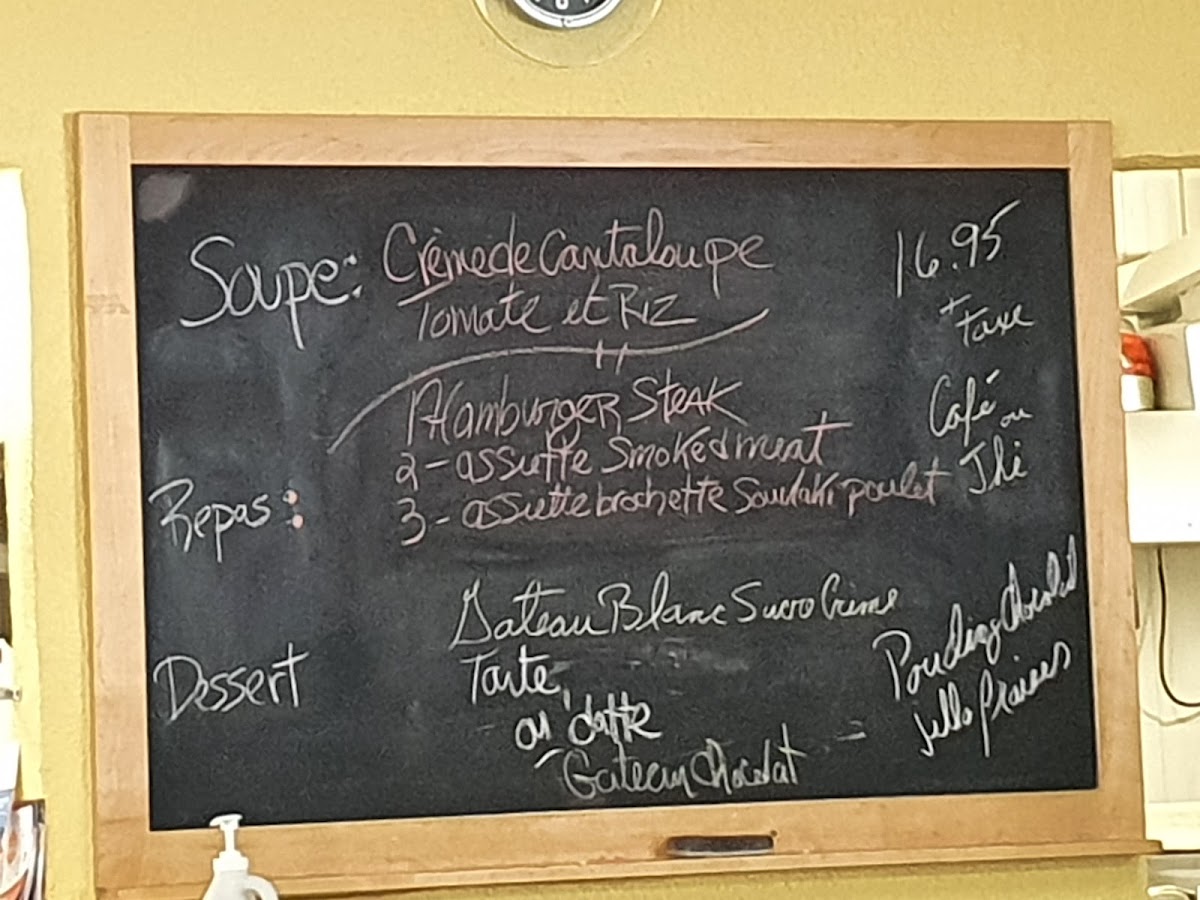 Soupe: Crème de Cantaloupe
Tomate et Riz
16.95
+ Taxe
Café ou
Thé
Repas:
1 Hamburger Steak
2 - assiette Smoked meat
3 - assiette brochette Souvlaki poulet
Dessert
Gateau Blanc Sucre Crème
Tarte
datte
Gateau Chocolat
Pouding Chocolat
jello fraises